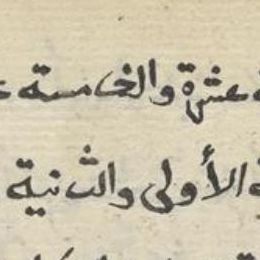 عشرة والخامسة
الأولى والثنية